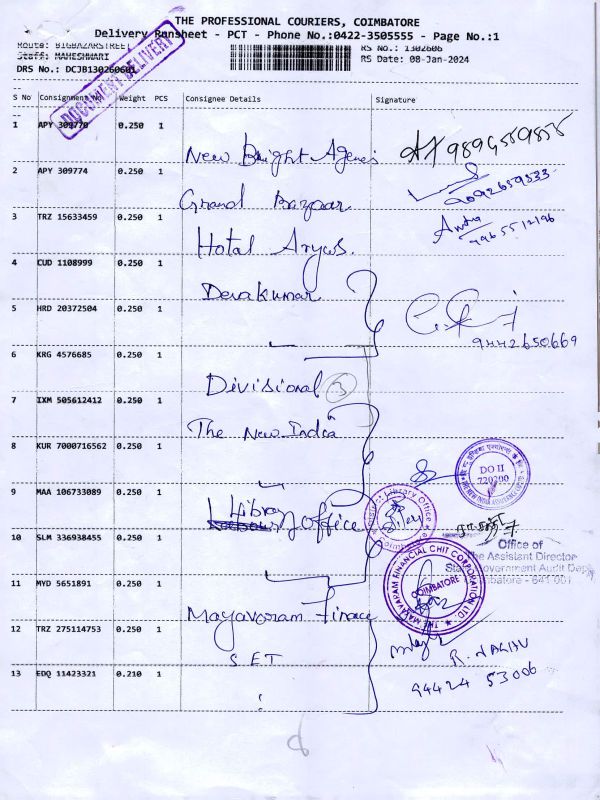 THE PROFESSIONAL COURIERS, COIMBATORE
Delivery Runsheet - PCT - Phone No.:0422-3505555 - Page No.:1
Route: BIGBAZARSTREET
RS No.: 1302606
Staff: MAHESHWARI
RS Date: 08-Jan-2024
DRS No.: DCJB130260601
DOCUMENT DELIVERY
S No Consignment No Weight PCS Consignee Details Signature
1 APY 309770 0.250 1 New Bright Agencies 9894559855
2 APY 309774 0.250 1 Grand Bazaar 9092659333
3 TRZ 15633459 0.250 1 Hotal Aryas.
4 CUD 1108999 0.250 1 Devakumar
5 HRD 20372504 0.250 1
9442650669
6 KRG 4576685 0.250 1 Divisional 3
7 IXM 505612412 0.250 1 The New India
8 KUR 7000716562 0.250 1
DO II
720700
9 MAA 106733089 0.250 1 Library office
10 SLM 336938455 0.250 1
Office of
The Assistant Director
State Government Audit Dept
Coimbatore - 641 001
11 MYD 5651891 0.250 1 Mayavaram Finace
THE MAYAVARAM FINANCIAL CHIT CORPORATION LTD
COIMBATORE
12 TRZ 275114753 0.250 1 SET
13 EDQ 11423321 0.210 1
94424 53006